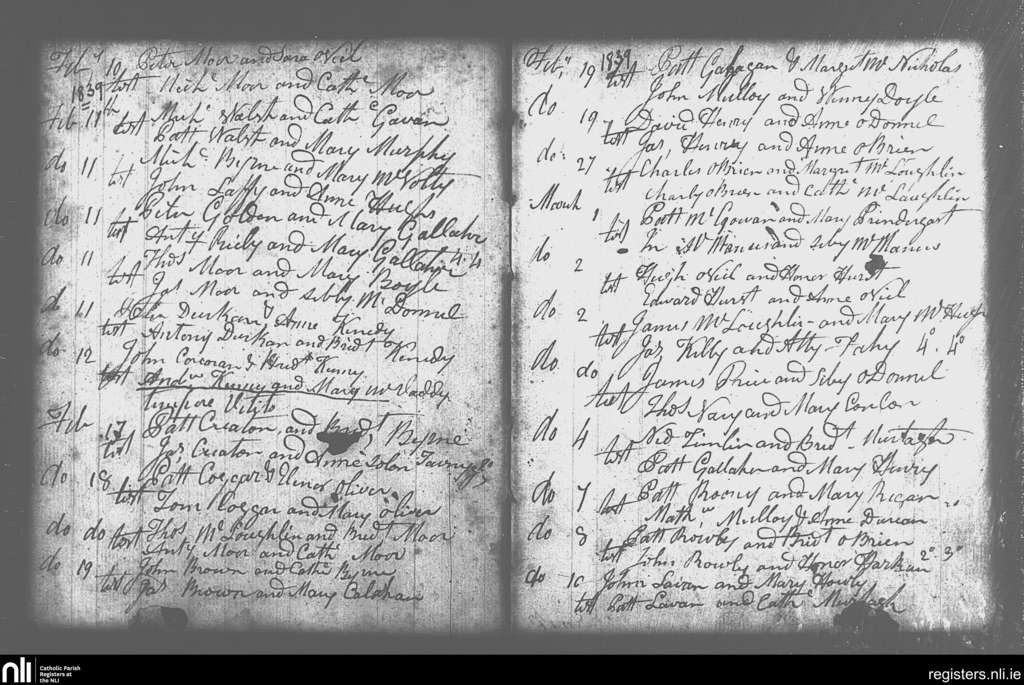 Feby 10 Peter Moor and Sara oNeil
1839 test Mich Moor and Cathe Moor
Feb 11th Mich Walsh and Cathe Gavan
test Patt Walsh and Mary Murphy
do 11 Mich Byrne and Mary McNolty
test John Laffy and Anne Hughs
do 11 Peter Golden and Mary Gallaher
test Anty and Mary Gallaher 4.4
do 11 Thos Moor and Mary Boyle
test Jas Moor and Sibby McDonnel
do 11 Durkan & Anne Kenedy
test Antony Durkan and Bridt Kenedy
do 12 John Corcoran & Kenny
test Andw Kenny and Mary McVaddy
tempore Vetito
Feb 17 Patt Creaton and Bridt Byrne
test Jas Creaton and Anne
do 18 Patt Coggar & Elinor oliver
test Tom Coggar and Mary oliver
do do Thos McLoughlin and Bridt Moor
test Anty Moor and Cathe Moor
do 19 John Brown and Cathe Byrne
test Jas Brown and Mary Calahan
Feby 19 1839 Patt Gahagan & Margret McNicholas
test John Mulloy and Winney Doyle
do 19 David Henry and Anne oDonnel
test Jas Henry and Anne oBrien
do 27 Charles oBrien and Margret McLoughlin
test Charly oBrien and Cath McLaughlin
March 1 Patt McGowan and Mary Prindergast
test Jn McManus and Siby McManus
do 2 Hugh oNeil and Honor Hurst
test Edward Hurst and Anne oNeil
do 2 James McLoughlin and Mary McHugh
test Jas Kilby and Atty Fahy 4. 4s
do do James Price and Siby oDonnel
test Thos Vary and Mary Conlon
do 4 Ned Timlin and Bridt Murtagh
test Patt Gallaher and Mary Henry
do 7 Patt Rooney and Mary Regan
test Mathw Mulloy & Anne Duncan
do 8 Patt Rowley and Bridt oBrien
test John Rowley and Honor Harkan 2s 3s
do 10 John Lavan and Mary Howly
test Patt Lavan and Cathe Murtagh
nli
Catholic Parish
Registers at
the NLI
registers.nli.ie